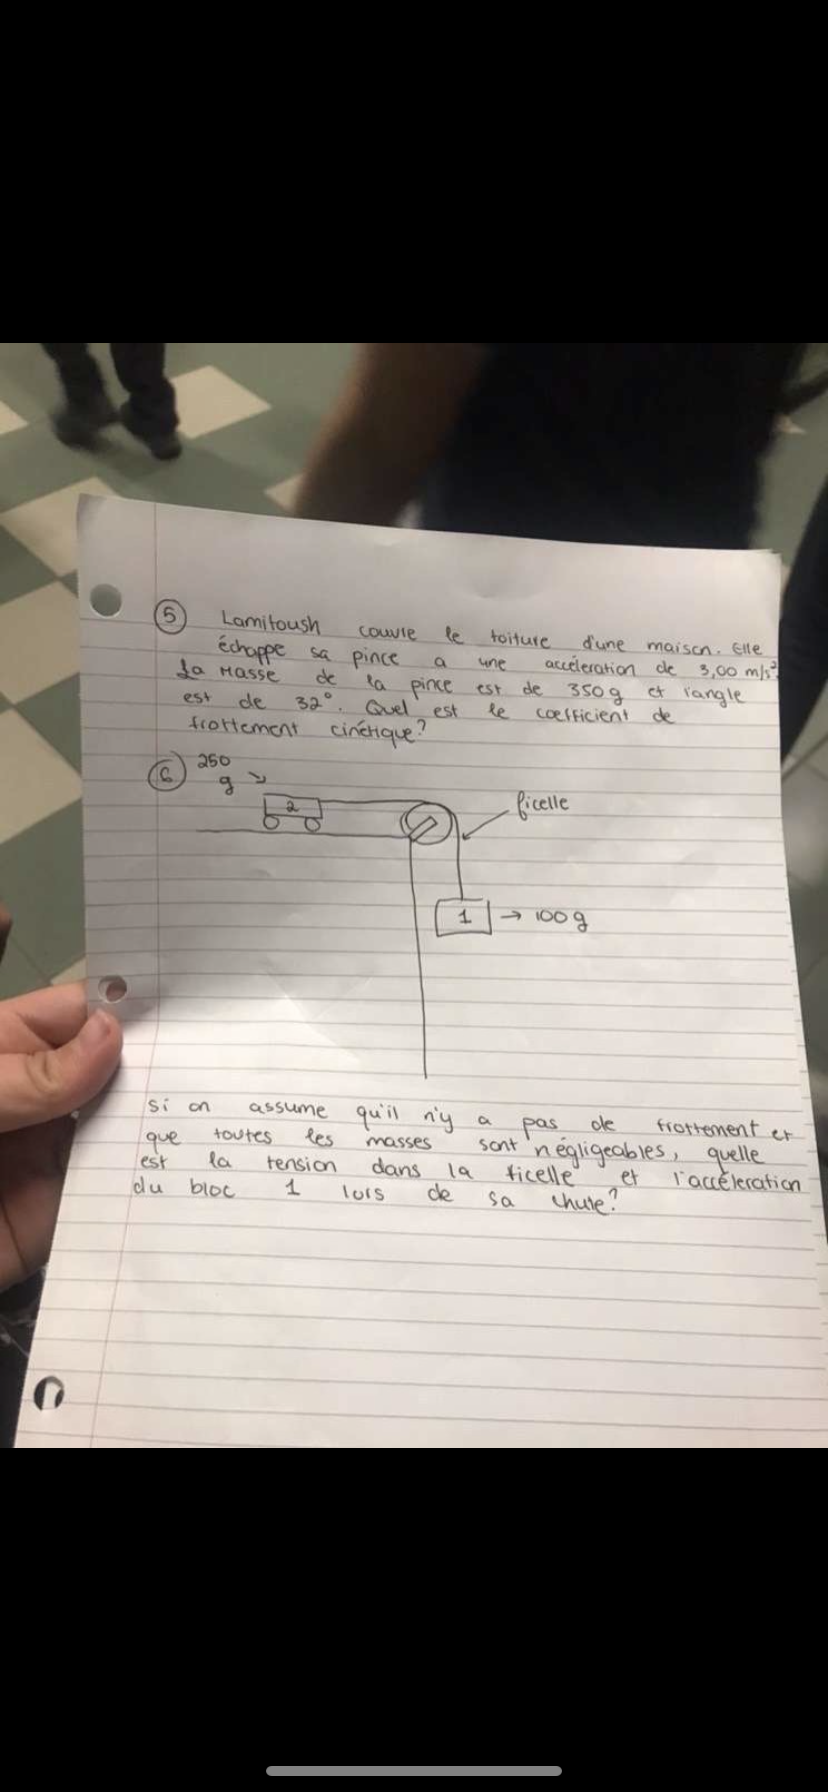 5 Lamitoush couvre le toiture d'une maison. Elle
échappe sa pince a une accéleration de 3,00 m/s².
La masse de la pince est de 350g et l'angle
est de 32°. Quel est le coefficient de
frottement cinétique?
6 250
g
2
ficelle
1 → 100g
si on assume qu'il n'y a pas de frottement et
que toutes les masses sont négligeables, quelle
est la tension dans la ficelle et l'accéleration
du bloc 1 lors de sa chute?